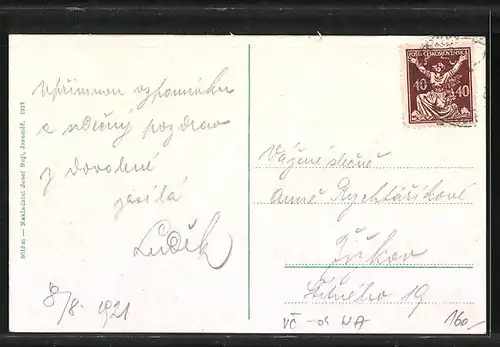 Upřímnou vzpomínku
a srdečný pozdrav
z dovolené
zasílá
Luděk
8/8. 1921
8015 m — Nakladatel Josef Rejl, Jaroměř. 1917
POŠTA ČESKOSLOVENSKÁ
40 40
Vážené slečně
Anně Rychtaříkové
Žižkov
Štítného 19
VČ - 04 NA-
160,-